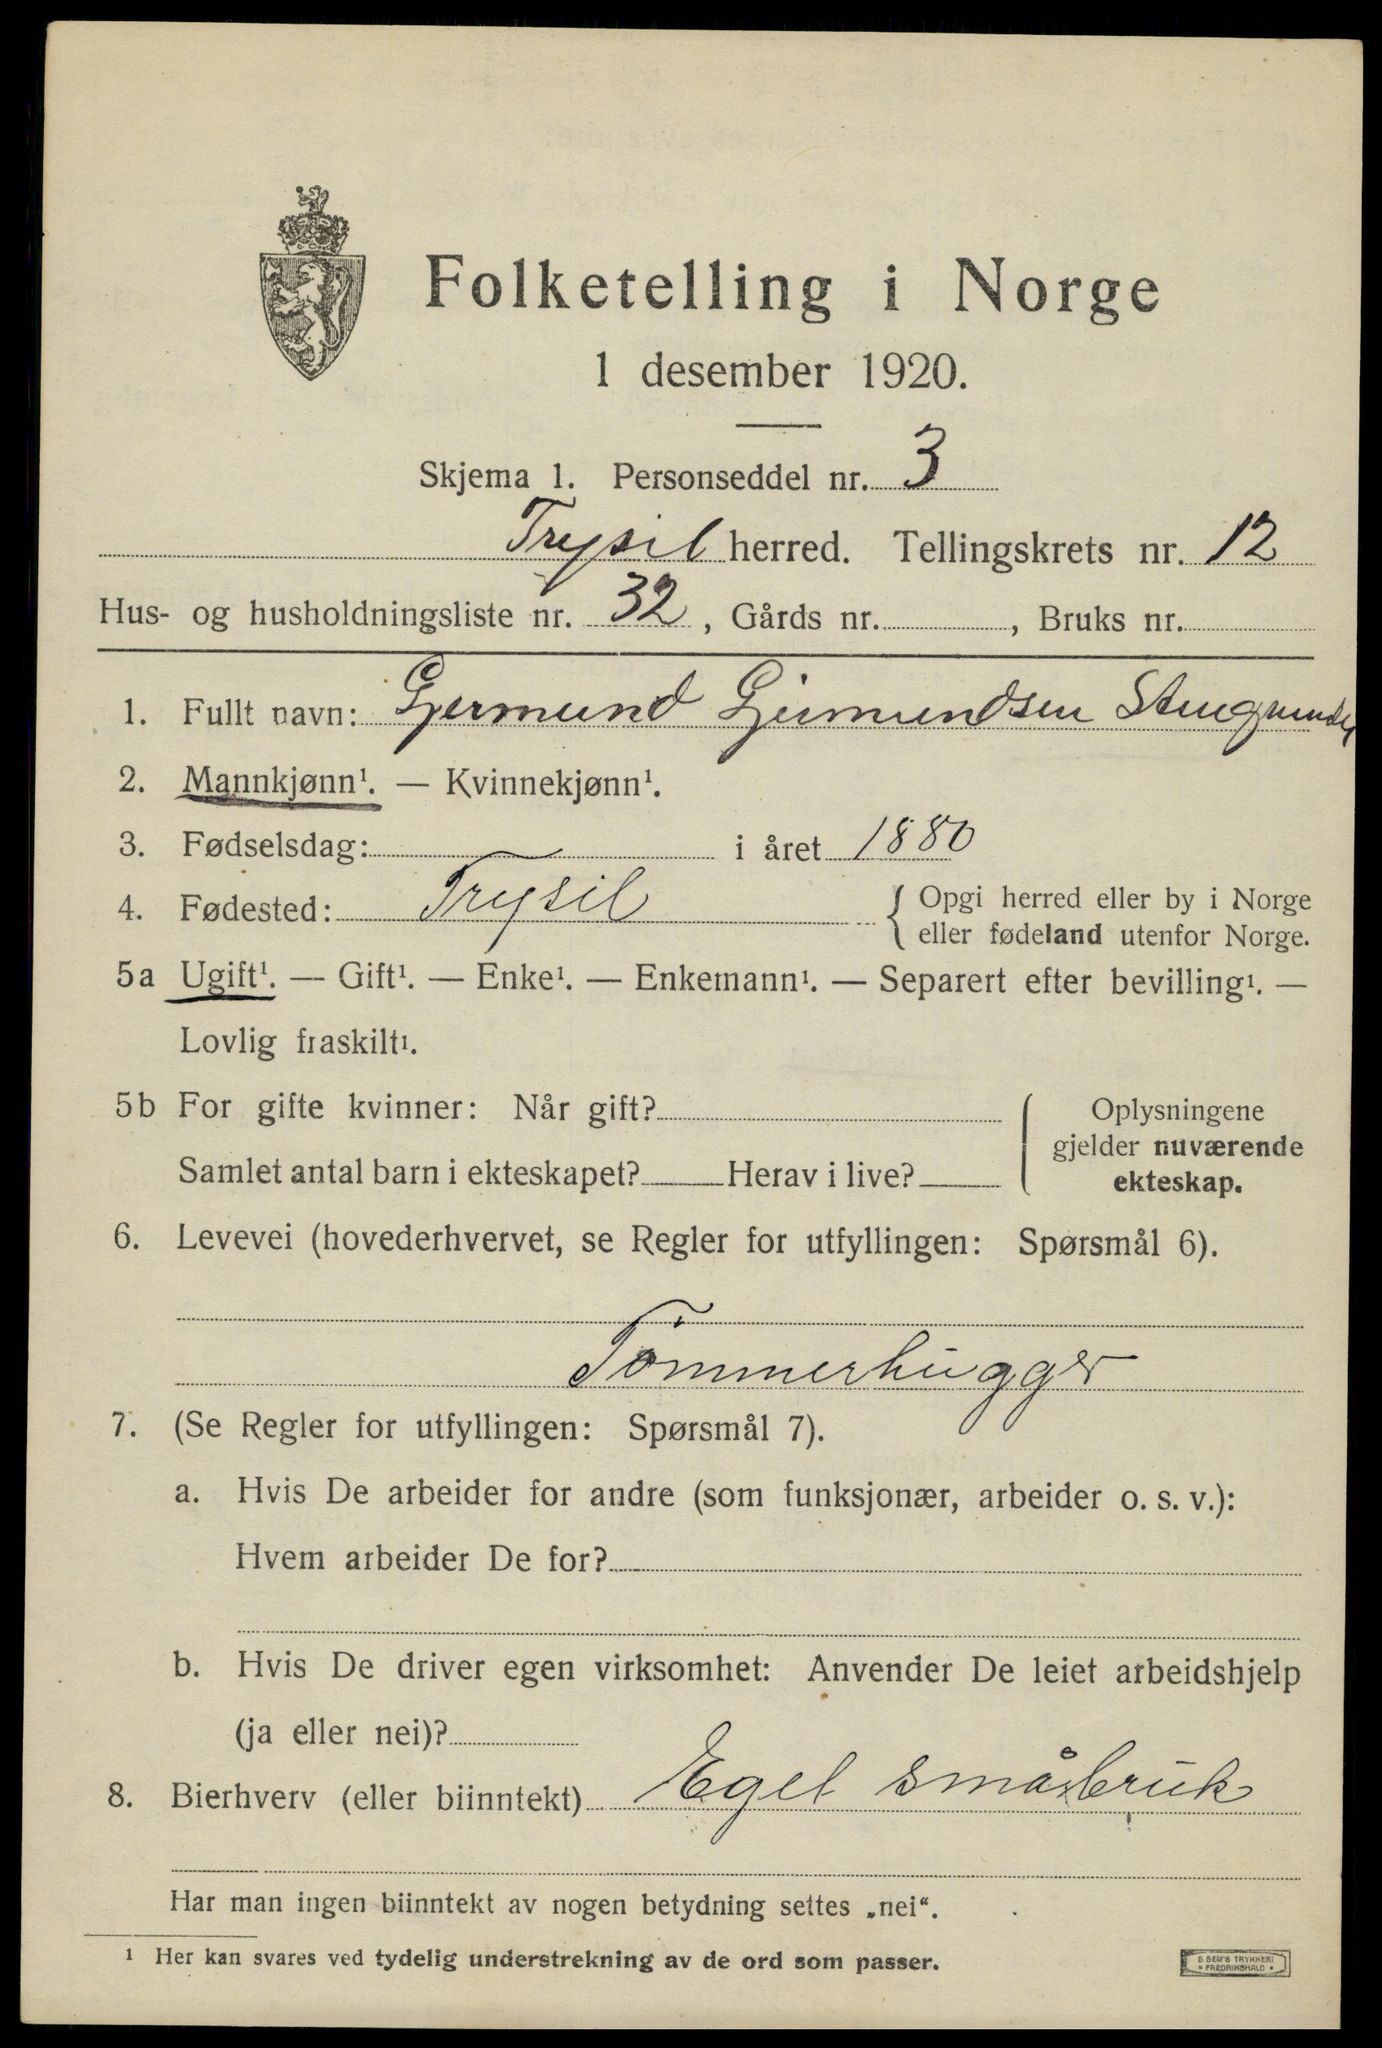 Folketelling i Norge
1 desember 1920.
Skjema 1. Personseddel nr. 3
Trysil herred. Tellingskrets nr. 12
Hus- og husholdningsliste nr. 32, Gårds nr. , Bruks nr.
1. Fullt navn: Gjermund Gjermundsen
2. Mannkjønn¹. — Kvinnekjønn¹.
3. Fødselsdag: i året 1880
4. Fødested: Trysil { Opgi herred eller by i Norge
eller fødeland utenfor Norge.
5a Ugift¹. — Gift¹. — Enke¹. — Enkemann¹. — Separert efter bevilling¹. —
Lovlig fraskilt¹.
5b For gifte kvinner: Når gift? { Oplysningene
gjelder nuværende
Samlet antal barn i ekteskapet? Herav i live? ekteskap.
6. Levevei (hovederhvervet, se Regler for utfyllingen: Spørsmål 6).
Tömmerhugger
7. (Se Regler for utfyllingen: Spørsmål 7).
a. Hvis De arbeider for andre (som funksjonær, arbeider o. s. v.):
Hvem arbeider De for?
b. Hvis De driver egen virksomhet: Anvender De leiet arbeidshjelp
(ja eller nei)?
8. Bierhverv (eller biinntekt) Eget småbruk
Har man ingen biinntekt av nogen betydning settes „nei“.
¹ Her kan svares ved tydelig understrekning av de ord som passer.
S. SEM'S TRYKKERI
• FREDRIKSHALD •